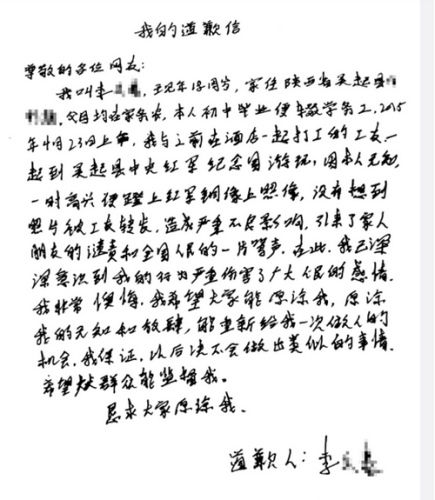 我的道歉信
尊敬的各位网友:
我叫李, 至现年18周岁, 家住陕西省吴起县
, 父母均在家务农, 本人初中毕业便辍学务工, 2015
年4月23日上午, 我与之前在酒店一起打工的工友一
起到吴起县中央红军纪念园游玩, 因本人无知,
一时高兴便蹬上红军铜像上照像, 没有想到
照片被工友转发, 造成严重不良影响, 引来了家人
朋友的谴责和全国人民的一片骂声. 在此, 我已深
深意识到我的行为严重伤害了广大人民的感情.
我非常懊悔, 我希望大家能原谅我, 原谅
我的无知和放肆, 能重新给我一次做人的
机会. 我保证, 以后决不会做出类似的事情.
希望群众能监督我。
恳求大家原谅我.
道歉人: 李